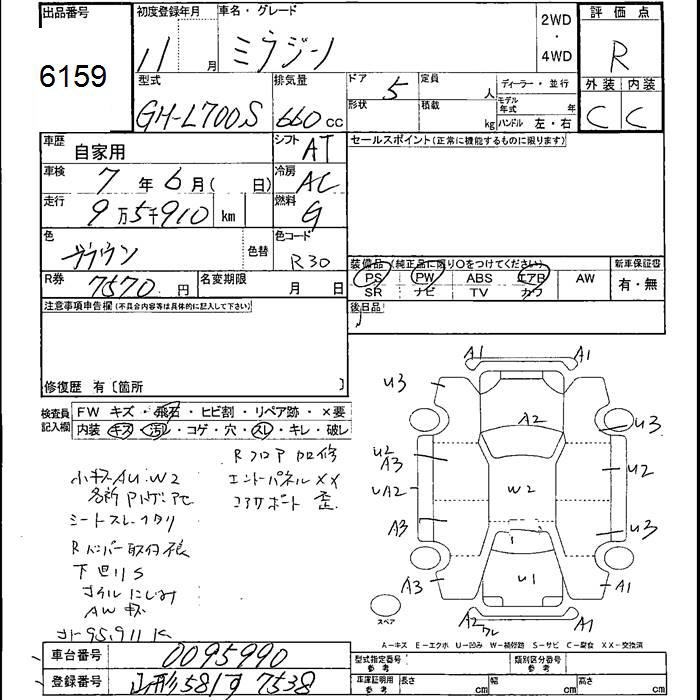 出品番号
6159
初度登録年月
11 月
車名・グレード
ミラジーノ
2WD
・
4WD
評価点
R
外装 内装
C C
型式
GH-L700S
排気量
660 cc
ドア 5
形状
定員 人
積載 kg
ディーラー・並行
モデル年式 年
ハンドル 左・右
車歴
自家用
シフト AT
車検 7 年 6 月 ( 日)
冷房 AC
走行 9万5千910 km
燃料 G
色 ブラウン
色替
色コード R30
R券 7570 円
名変期限 月 日
セールスポイント(正常に機能するものに限ります)
装備品 (純正品に限り○をつけてください)
新車保証書
PS PW ABS エアB AW
SR ナビ TV カワ
有・無
後日品
注意事項申告欄(不具合内容等は具体的に記入して下さい)
修復歴 有〔箇所 〕
検査員記入欄
FW キズ・飛石・ヒビ割・リペア跡・×要
内装 キズ・汚レ・コゲ・穴・スレ・キレ・破レ
小キズAU.W2
シートスレ
Rバンパー取付
下廻りS
オイルにじみ
AWキズ
コーション95,911K
Rフロア加修
エンドパネルXX
コアサポート歪
A1 A1
U3
A2
U3
U2
A3
U2
UA2
W2
A3
U3
A3
U1
A1
スペア
A2
A1
A-キズ E-エクボ U-凹み W-補修跡 S-サビ C-腐食 XX-交換済
車台番号 0095990
登録番号 山形581す7538
型式指定番号 参考
類別区分番号 参考
車庫証明用 参考
長さ cm
幅 cm
高さ cm